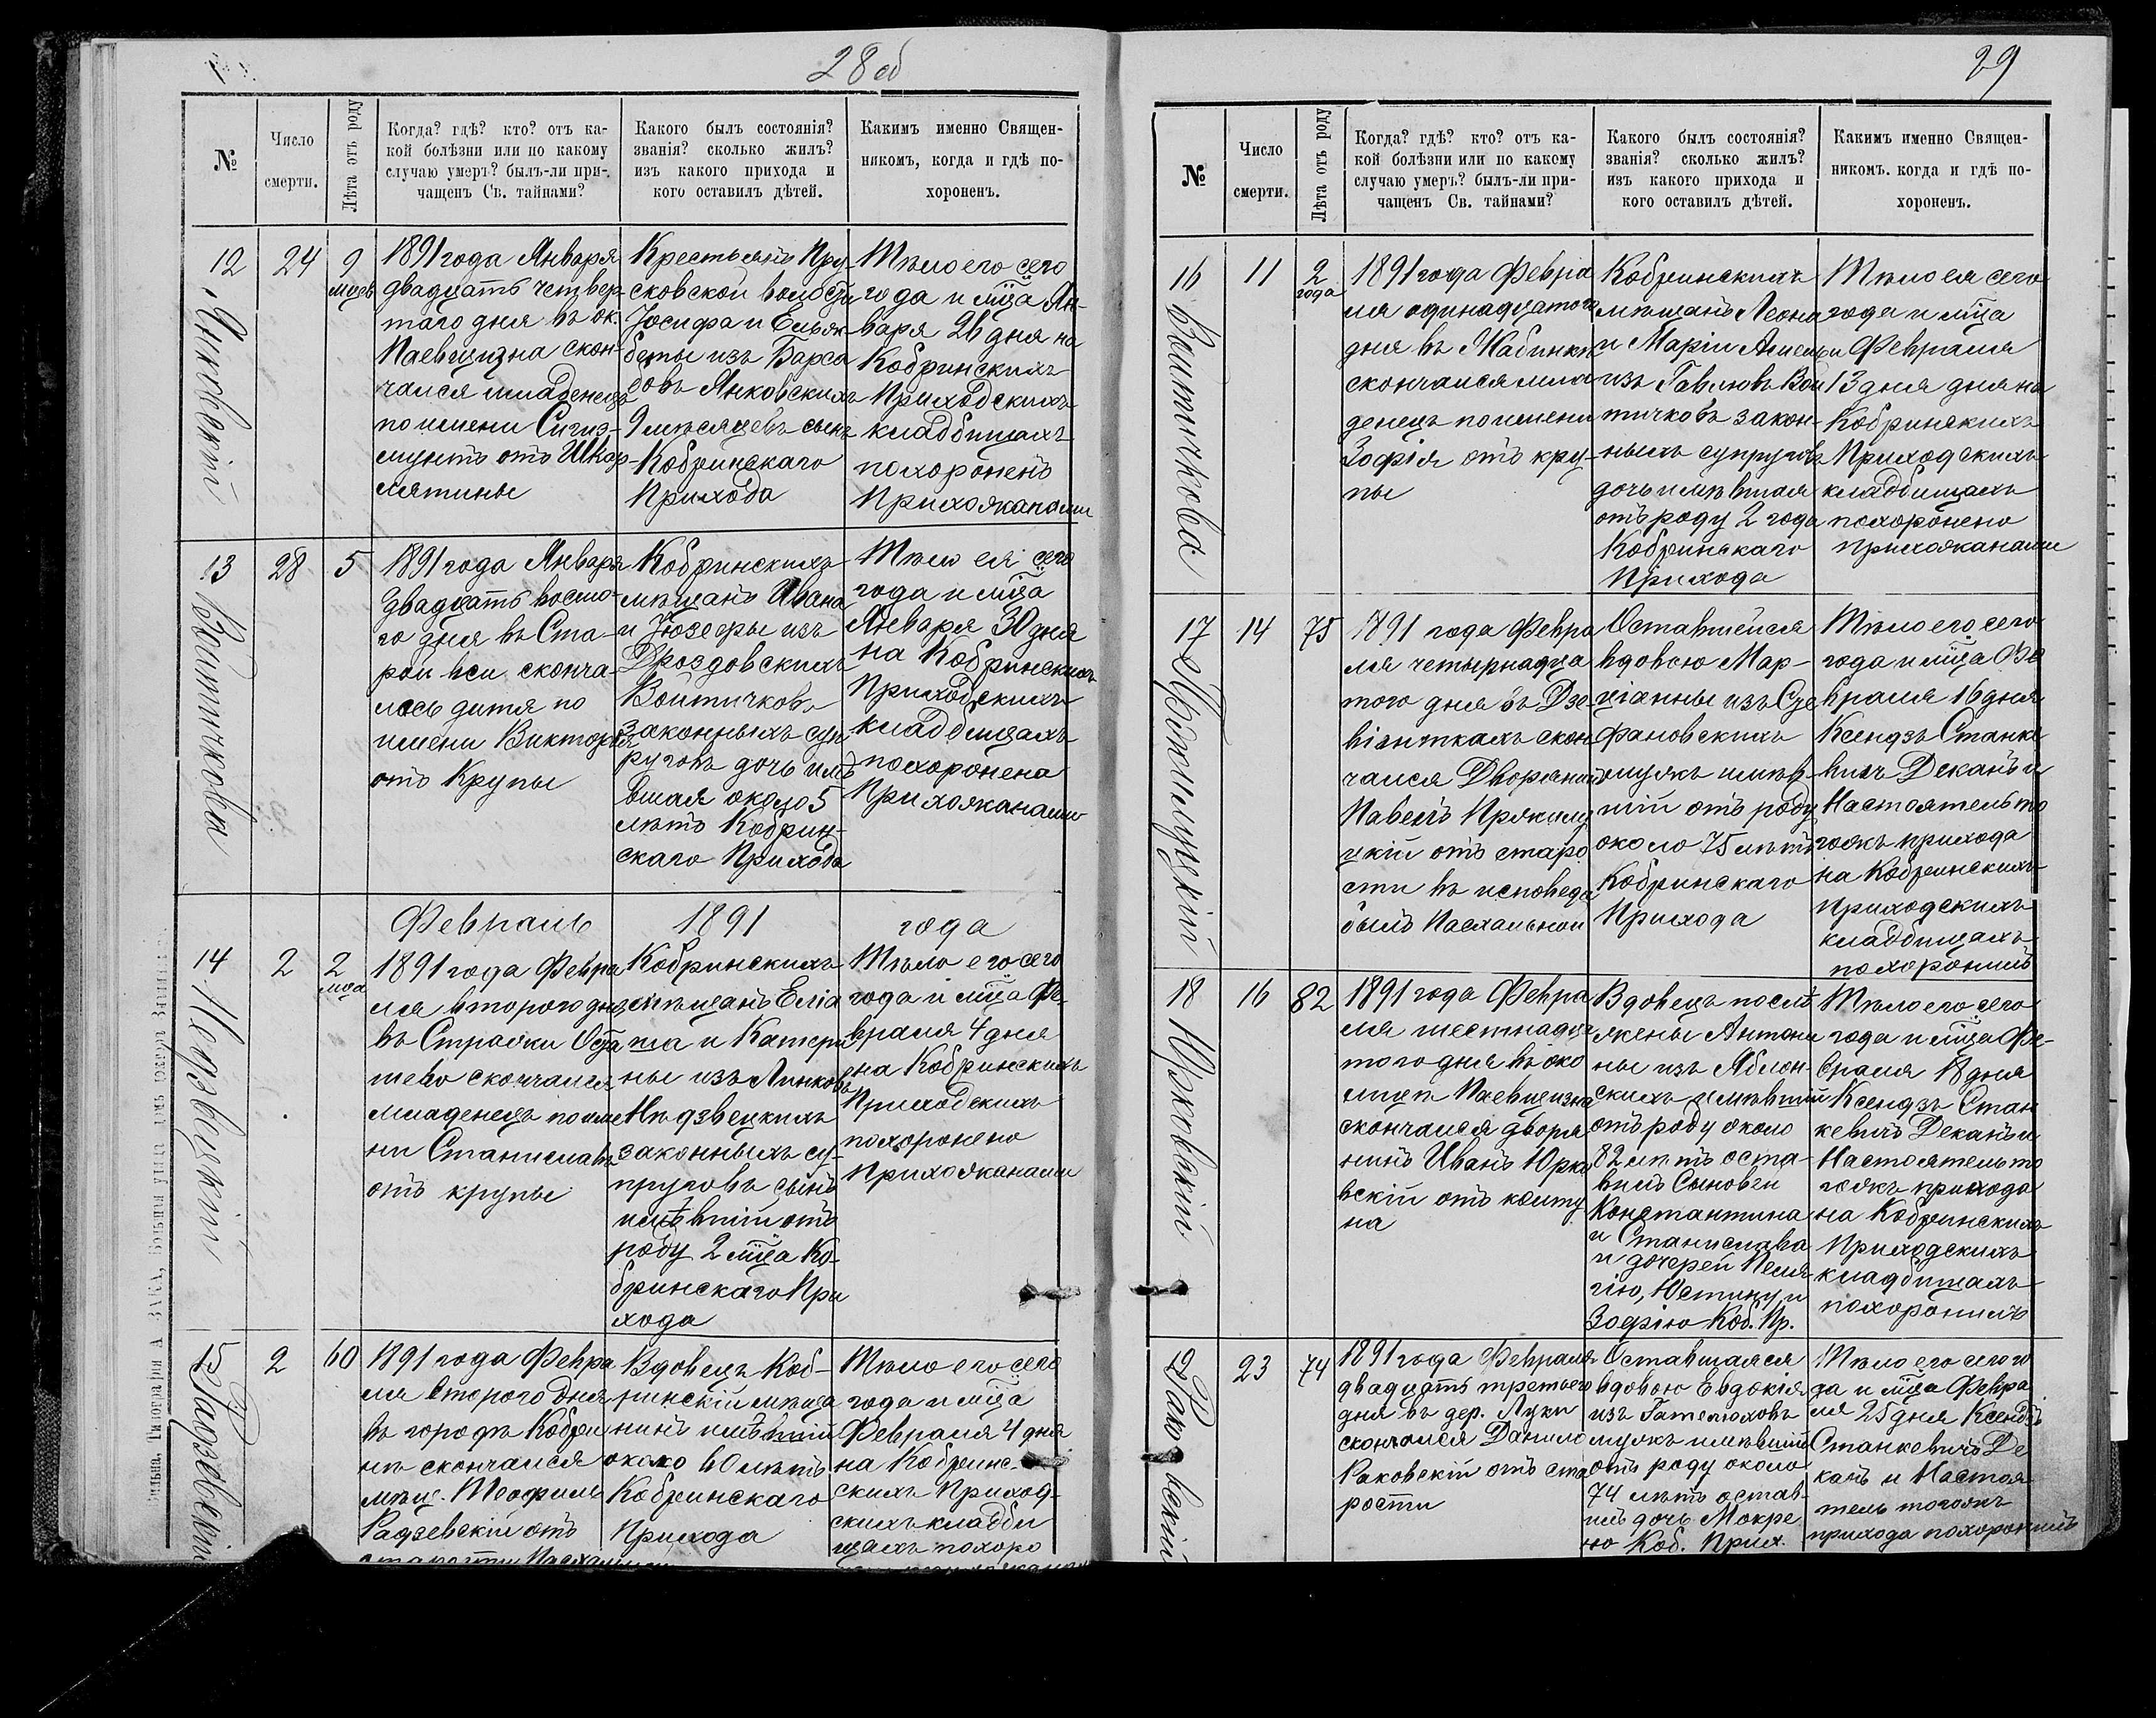 28 об
№
Число
смерти.
Лѣта отъ роду
Когда? гдѣ? кто? отъ ка-
кой болѣзни или по какому
случаю умеръ? былъ-ли при-
чащенъ Св. тайнами?
Какого былъ состоянія?
званія? сколько жилъ?
изъ какого прихода и
кого оставилъ дѣтей.
Какимъ именно Священ-
никомъ, когда и гдѣ по-
хороненъ.
12
Янковскій
24
9
мцевъ
1891 года Января
двадцать четвер-
таго дня въ ок.
Паевщизна скон-
чался младенецъ
по имени Сигиз-
мунтъ отъ Шкар-
лятины
Крестьянъ Пру-
сковской волости
Іосифа и Ельж-
беты изъ Барса
бовъ Янковскихъ
9 мѣсяцевъ сынъ
Кобринскаго
Прихода
Тѣло его сего
года и мца Ян-
варя 26 дня на
Кобринскихъ
Приходскихъ
кладбищахъ
похороненъ
Прихожанами
13
Войтичкова
28
5
1891 года Января
двадцать восмо-
го дня въ Ста-
рой вси сконча-
лось дитя по
имени Викторія
отъ Крупы
Кобринскихъ
мѣщанъ Ивана
и Юзефы изъ
Дроздовскихъ
Войтичковъ
законныхъ суп
руговъ дочь имѣ
вшая около 5
лѣтъ Кобрин-
скаго Прихода
Тѣло ея сего
года и мца
Января 30 дня
на Кобринскихъ
Приходскихъ
кладбищахъ
похоронена
Прихожанами
Февраль 1891 года
14
Недзвецкій
2
2
мца
1891 года Февра
ля второго дня
въ Страдки
скончался
младенецъ по име
ни Станиславъ
отъ крупы
Кобринскихъ
мѣщанъ
и Катери
ны изъ Линковъ
Недзвецкихъ
законныхъ су-
пруговъ сынъ
имѣвшій отъ
роду 2 мца Ко-
бринскаго При
хода
Тѣло его сего
года и мца Фе-
враля 4 дня
на Кобринскихъ
Приходскихъ
похоронено
Прихожанами
15
Радзевскій
2
60
1891 года Февра
ля второго дня
въ городѣ Кобри
нѣ скончался
мѣщ. Теофиль
Радзевскій отъ
старости
Вдовецъ Коб-
ринскій мѣща
нинъ имѣвшій
около 60 лѣтъ
Кобринскаго
Прихода
Тѣло его сего
года и мца
Февраля 4 дня
на Кобринс-
скихъ Приход-
скихъ кладби
щахъ похоро
Вильна. Типографія А.
29
№
Число
смерти.
Лѣта отъ роду
Когда? гдѣ? кто? отъ ка-
кой болѣзни или по какому
случаю умеръ? былъ-ли при-
чащенъ Св. тайнами?
Какого былъ состоянія?
званія? сколько жилъ?
изъ какого прихода и
кого оставилъ дѣтей.
Какимъ именно Священ-
никомъ. когда и гдѣ по-
хороненъ.
16
Войтичкова
11
2
года
1891 года Февра
ля одинадцатого
дня въ Жабинкѣ
скончался мла
денецъ по имени
Зофія отъ кру-
пы
Кобринскихъ
мѣщанъ Леона
и Маріи Амельи
изъ Войтичковъ закон-
ныхъ супруговъ
дочь имѣвшая
отъ роду 2 года
Кобринскаго
Прихода
Тѣло ея сего
года и мца
Февраля
13 дня дня на
Кобринскихъ
Приходскихъ
кладбищахъ
похоронено
прихожанами
17
14
75
1891 года Февра
ля четырнадца
того дня въ
скон
чался Дворянинъ
Павелъ
отъ старо
сти въ исповеди
былъ Пасхальной
Оставшейся
вдовою Мар-
ціанны изъ Сте
фановскихъ
мужъ имѣв
шій отъ роду
около 75 лѣтъ
Кобринскаго
Прихода
Тѣло его сего
года и мца Фе
враля 16 дня
Ксендзъ Станке
вичъ Деканъ и
Настоятель то
гожъ прихода
на Кобринскихъ
Приходскихъ
кладбищахъ
похоронилъ
18
Юрковскій
16
82
1891 года Февра
ля шестнадца
того дня въ око
лицѣ Паевщизна
скончался дворя
нинъ Иванъ Юрко
вскій отъ колту
на
Вдовецъ послѣ
жены Антони
ны изъ Яблон-
скихъ имѣвшій
отъ роду около
82 лѣтъ оста-
вилъ Сыновей
Константина
и Станислава
и дочерей Пеля-
гію, Юстину и
Зофію Коб. Пр.
Тѣло его сего
года и мца Фе-
враля 18 дня
Ксендзъ Стан
кевичъ Деканъ и
Настоятель то
гожъ прихода
на Кобринскихъ
Приходскихъ
кладбищахъ
похоронилъ
Раковскій
23
74
1891 года Февраля
двадцать третьего
дня въ дер. Луки
скончался Данило
Раковскій отъ ста
рости
Оставшаяся
вдовою Евдокія
изъ Гателюховъ
мужъ имѣвшій
отъ роду около
74 лѣтъ остав-
илъ дочь Мокре
ню Коб. Прих.
Тѣло его сего го
да и мца Февра
ля 25 дня Ксендзъ
Станкевичъ Де
канъ и Настоя
тель тогожъ
прихода похоронилъ